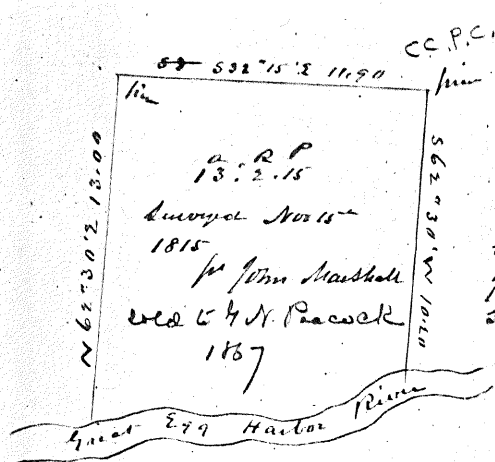 C.C.P.C.
S32°15'E 11.90
pine
pine
N62°30'E 13.00
S62°30'W 10.20
A R P
13:2.15
Surveyed Nov 15th
1815
for John Marshall
sold to G N. Peacock
1867
Great Egg Harbor River